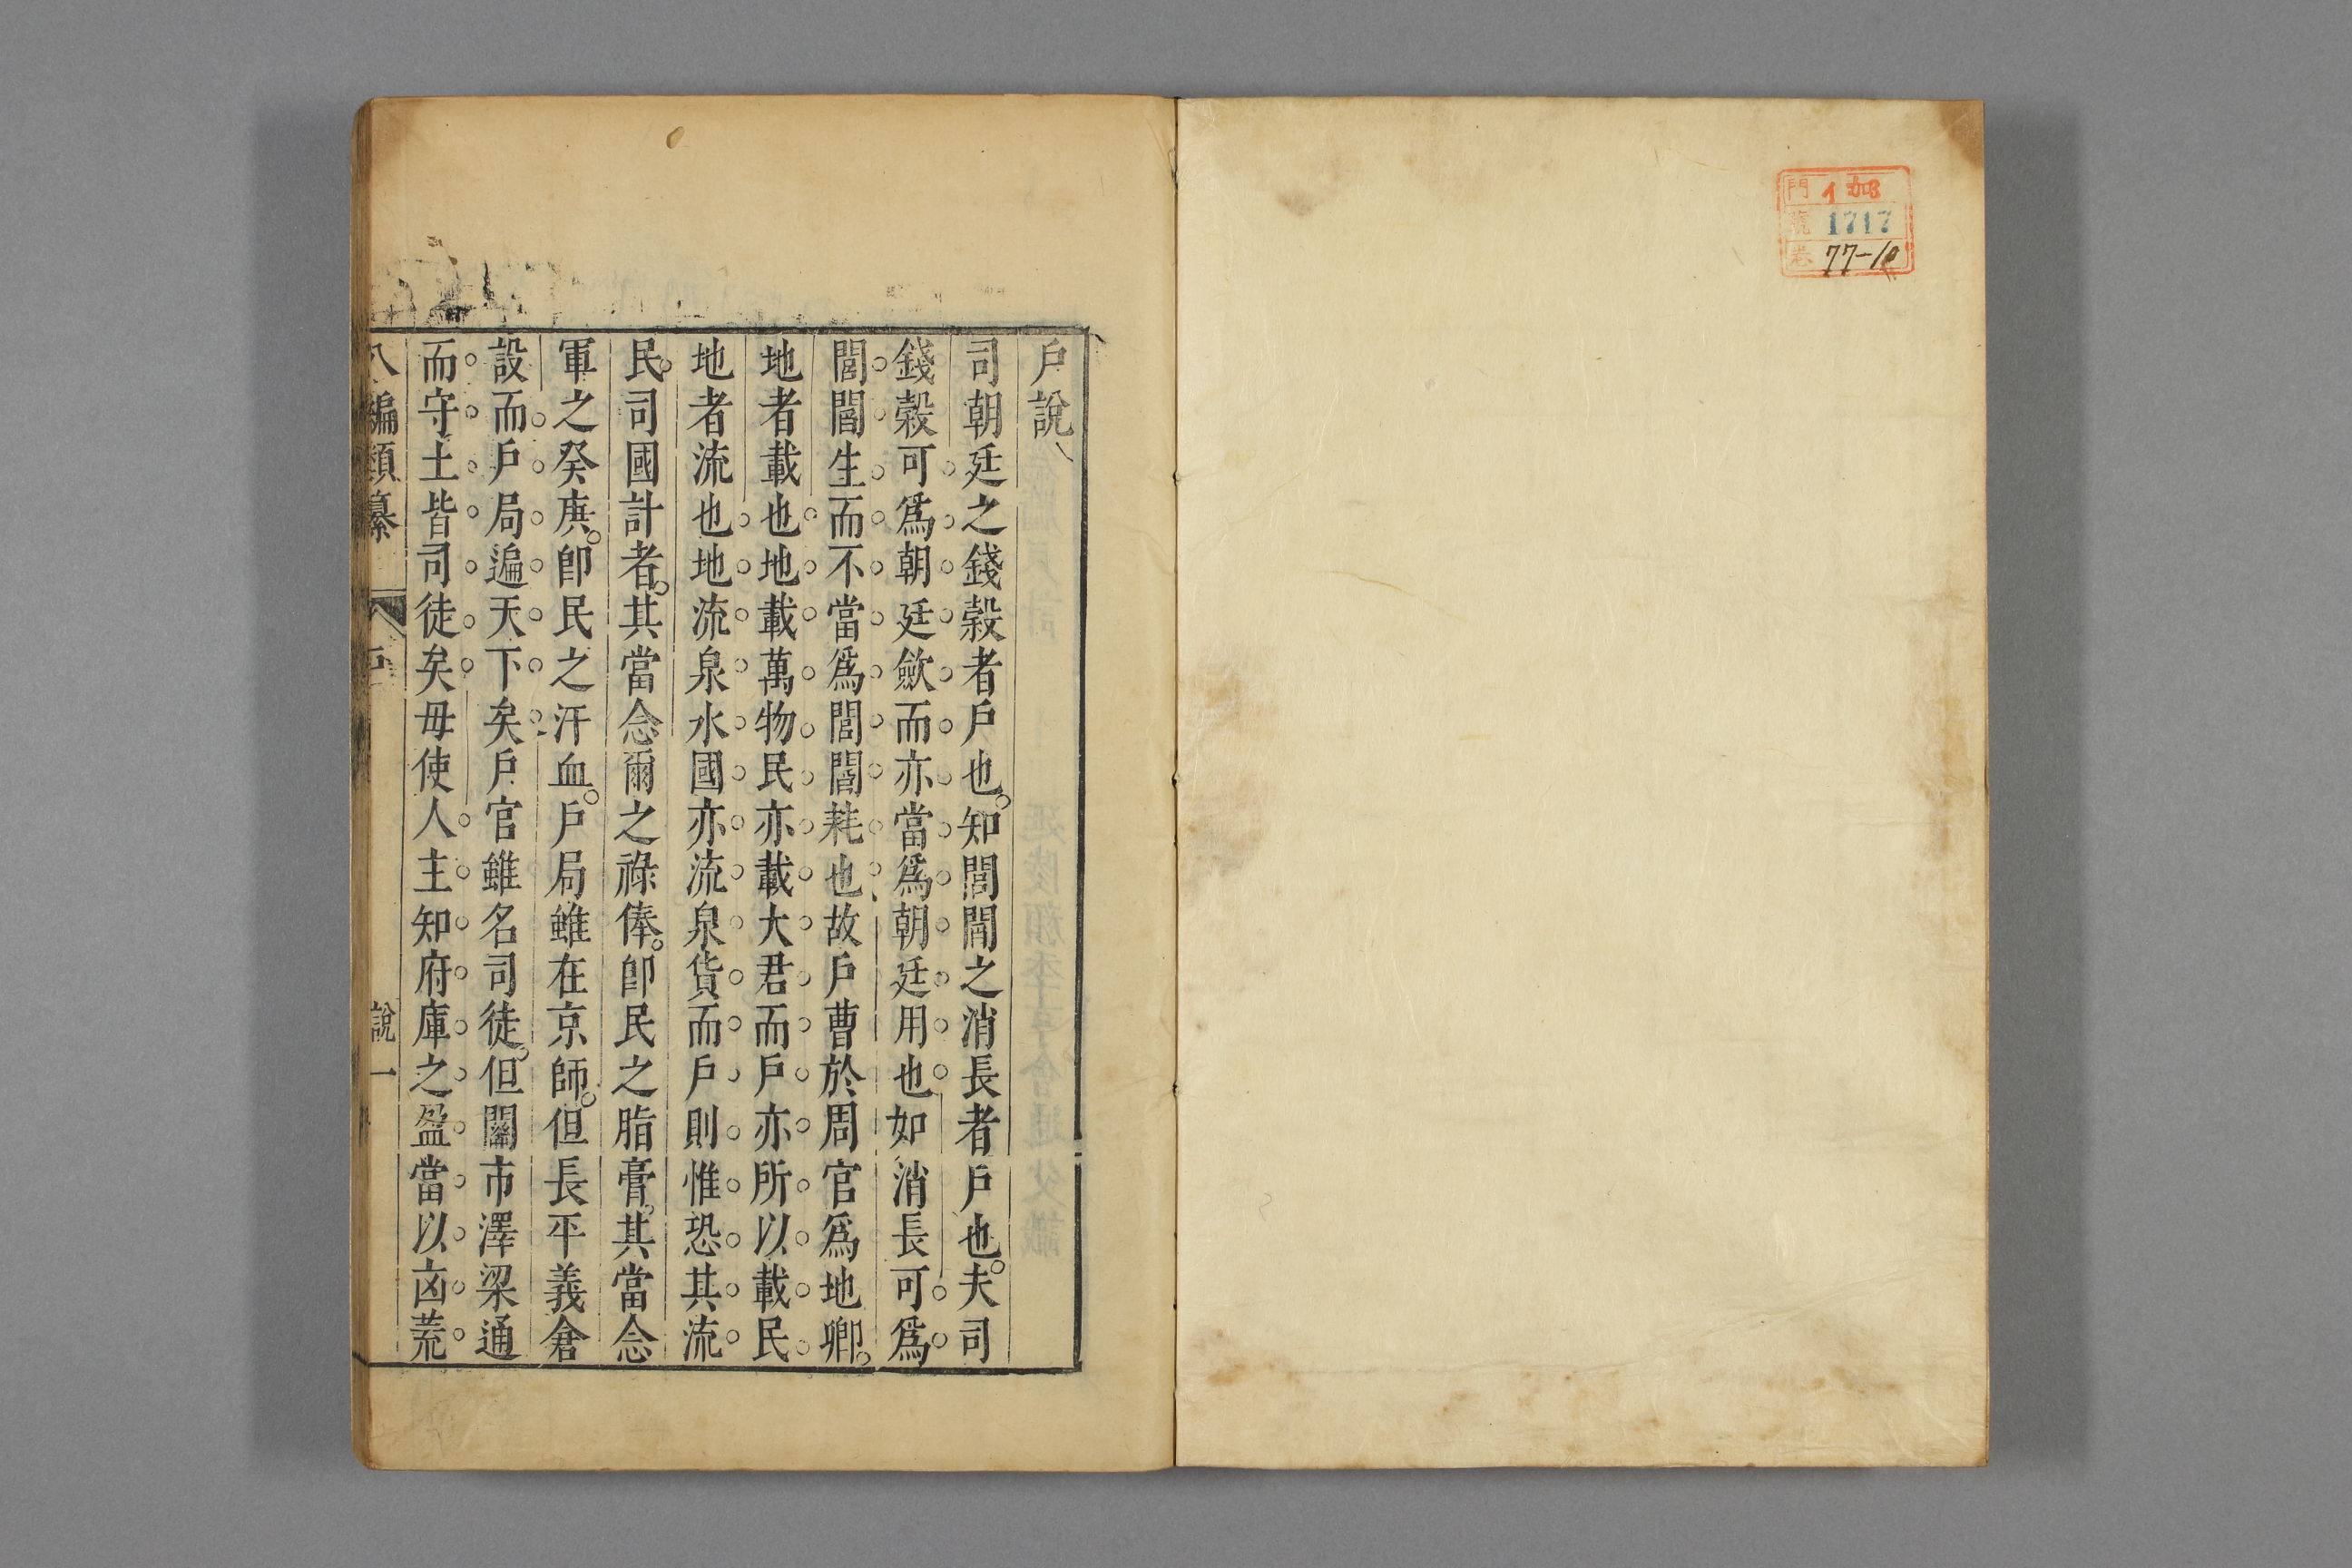 門 イ 加3
號 1717
卷 77-10
戶說
司朝廷之錢榖者戶也知閭閻之消長者戶也夫司
錢榖可爲朝廷斂而亦當爲朝廷用也如消長可爲
閭閻生而不當爲閭閻耗也故戶曹於周官爲地卿
地者載也地載萬物民亦載大君而戶亦所以載民
地者流也地流泉水國亦流泉貨而戶則惟恐其流
民司國計者其當念爾之祿俸卽民之脂膏其當念
軍之癸庚卽民之汗血戶局雖在京師但長平義倉
設而戶局遍天下矣戶官雖名司徒但關市澤梁通
而守土皆司徒矣毋使人主知府庫之盈當以凶荒
八編類纂 戶 說 一